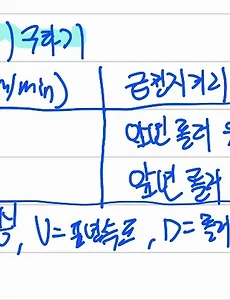 ) 구하기
m/min) 급정지거리
앞면 롤러
앞면 롤러
, V=표면속도, D=롤러